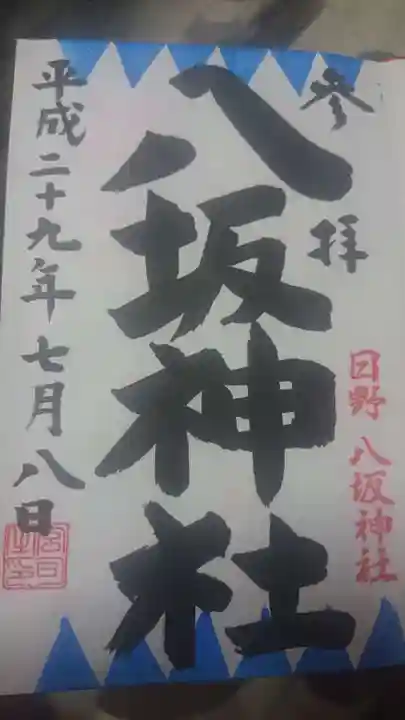 参拝
日野 八坂神社
八坂神社
平成二十九年七月八日